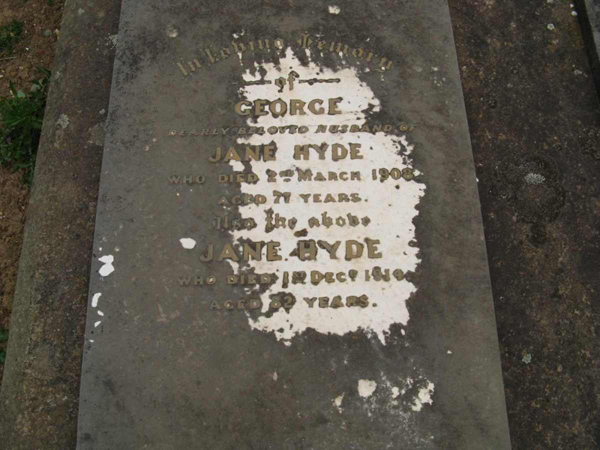 In Loving Memory
of
GEORGE
DEARLY BELOVED HUSBAND OF
JANE HYDE
WHO DIED 2ND MARCH 1908
AGED 71 YEARS.
Also the above
JANE HYDE
WHO DIED 1ST DECR
AGED YEARS.